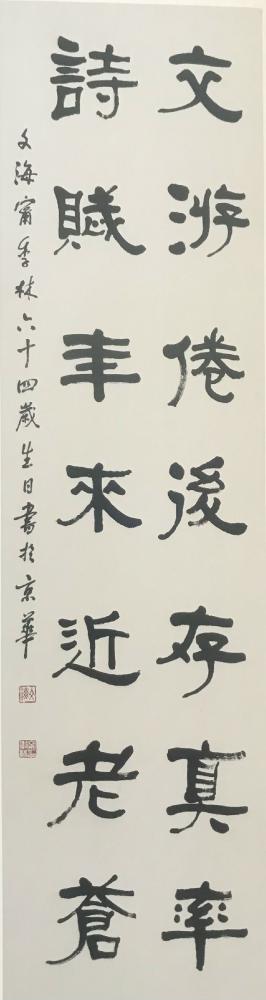 交游倦後存真率
詩賦年來近老蒼
文海甯季林六十四歲生日書於京華